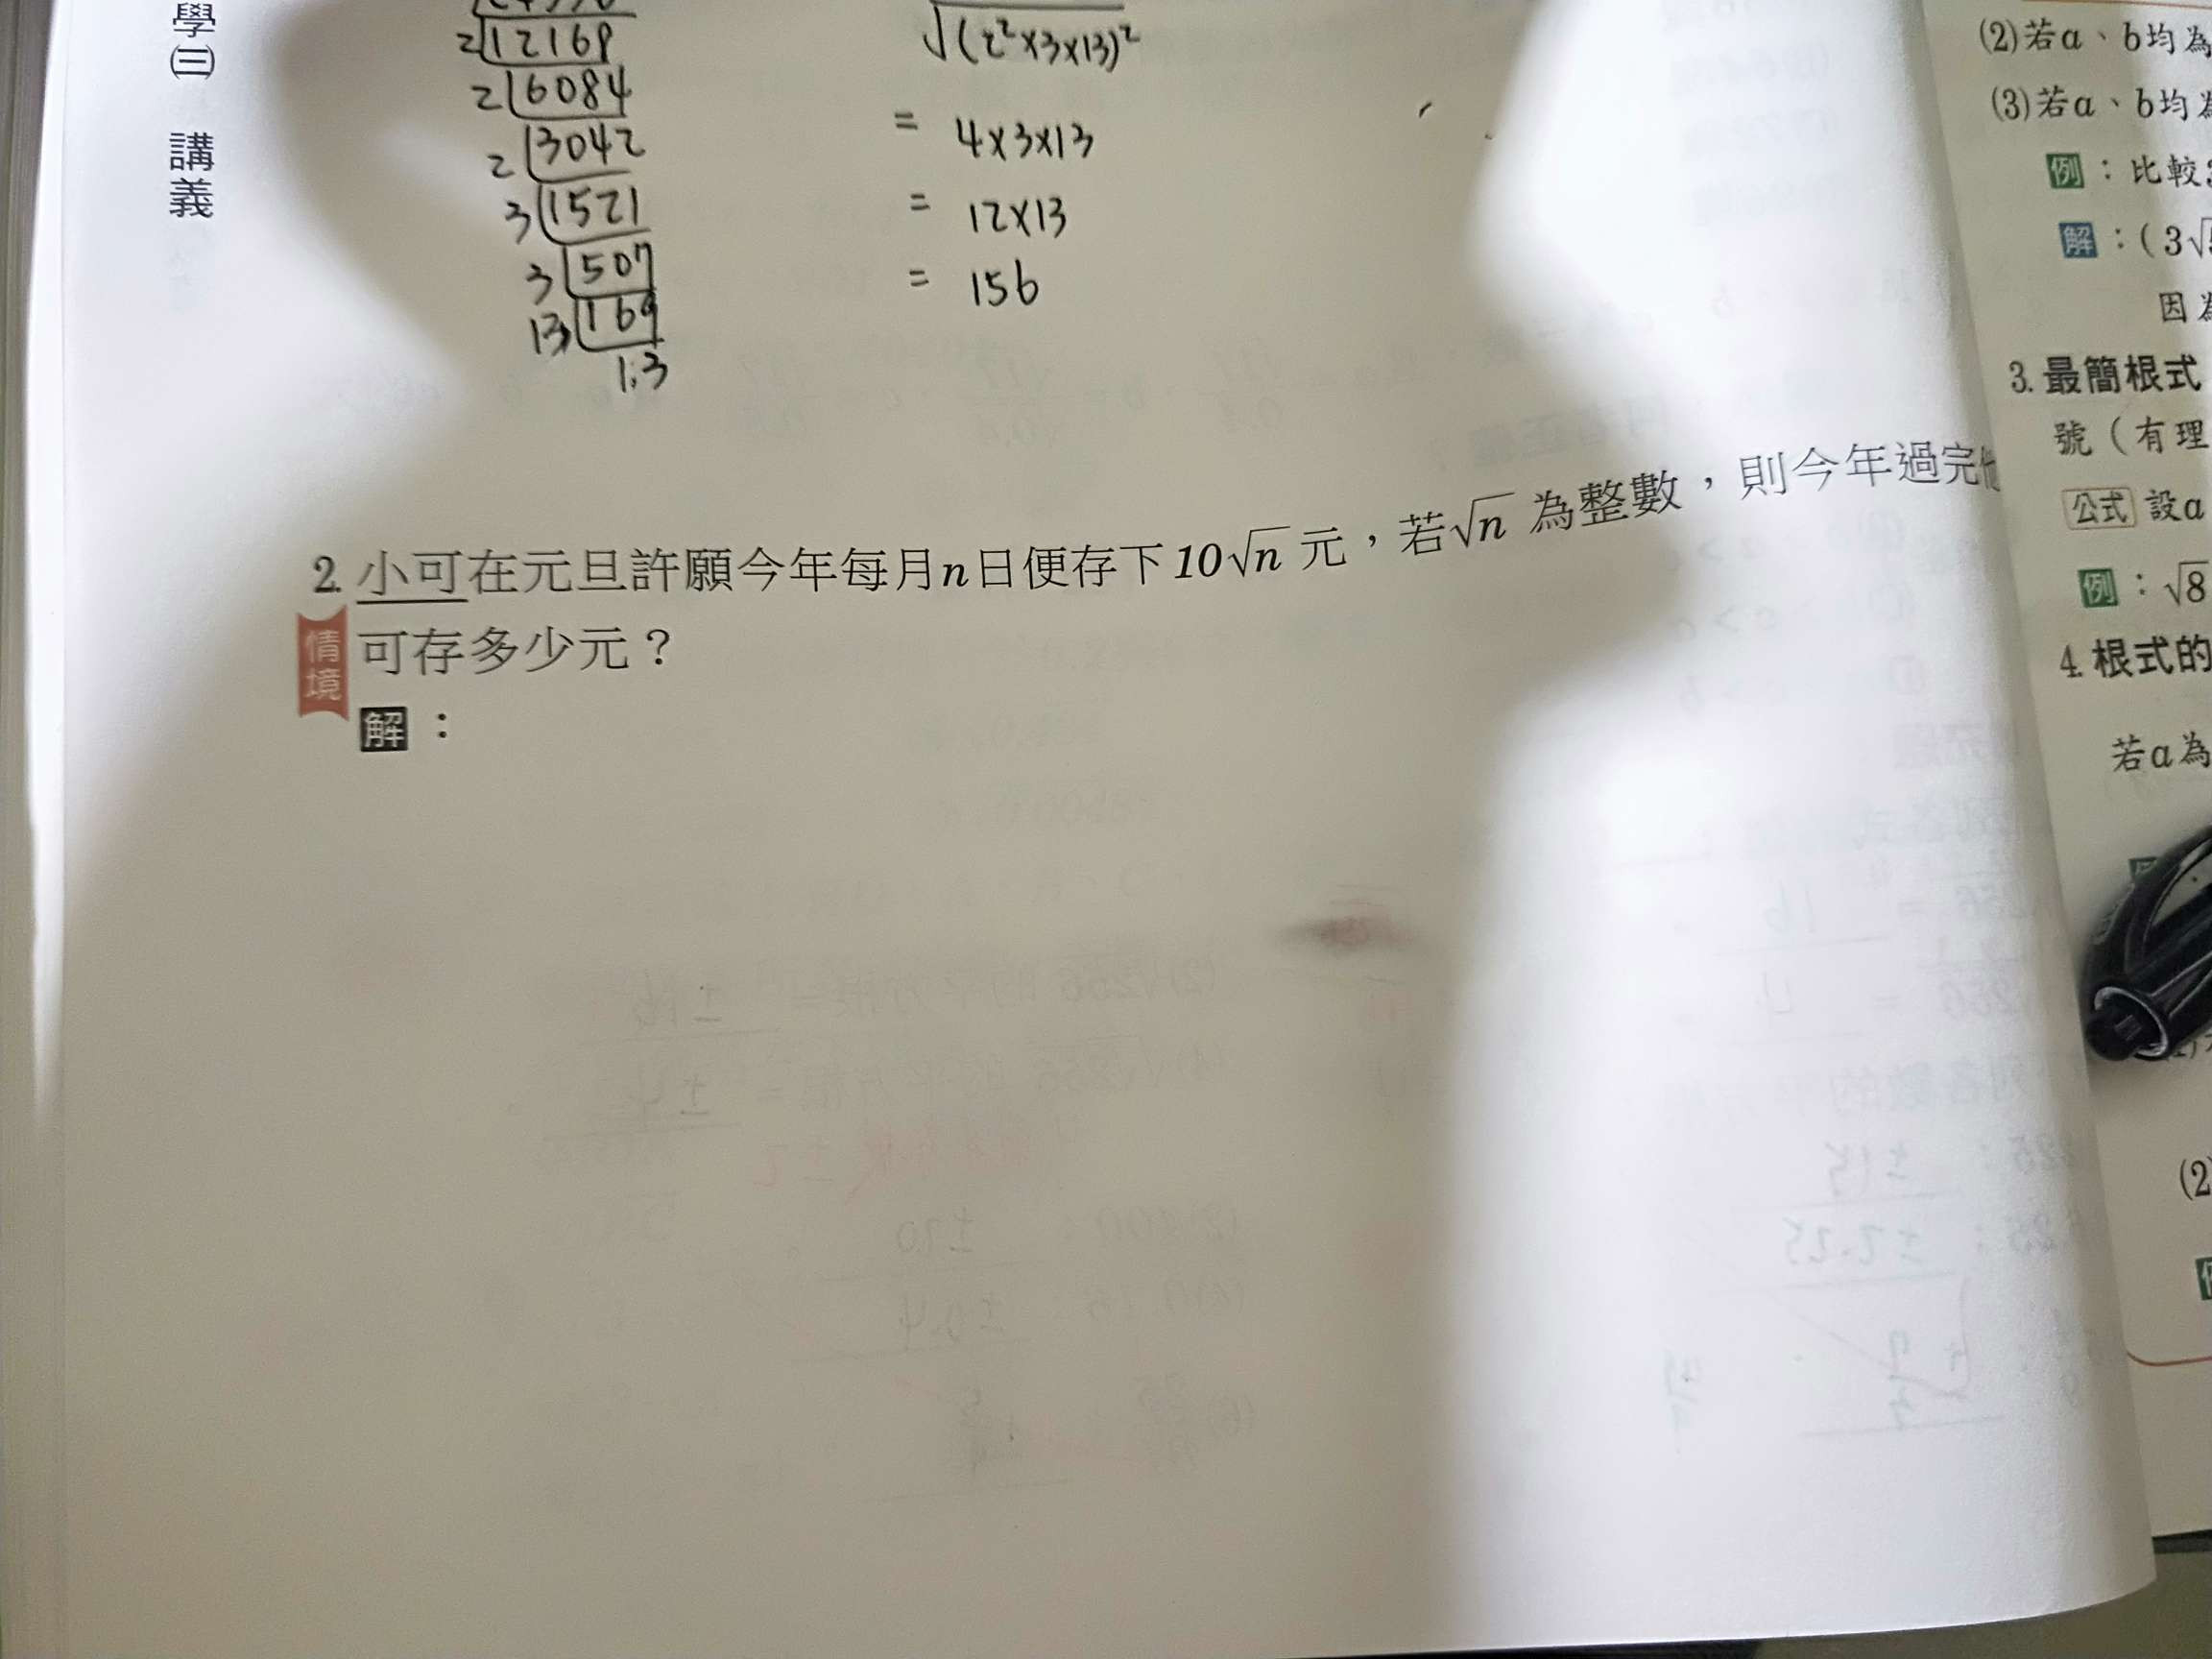 學(三) 講義
2 12168
2 6084
2 3042
3 1521
3 507
13 169
13
√(2²×3×13)²
= 4×3×13
= 12×13
= 156
2. 小可在元旦許願今年每月n日便存下10√n元，若√n為整數，則今年過完他
情境
可存多少元？
解：
(2)若a、b均為
(3)若a、b均為
例：比較
解：(3√
因為
3. 最簡根式
號（有理
公式 設a
例：√8
4. 根式的
若a為
(2)